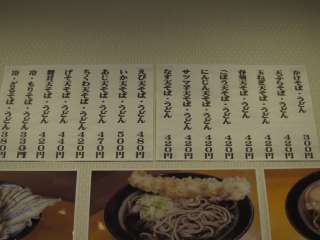 かけそば・うどん 300円
天ぷらそば・うどん 420円
玉ねぎ天そば・うどん 420円
春菊天そば・うどん 420円
ごぼう天そば・うどん 420円
にんじん天そば・うどん 420円
サンマ天そば・うどん 420円
なす天そば・うどん 420円
えび天そば・うどん 480円
いか天そば・うどん 500円
あじ天そば・うどん 470円
ちくわ天そば・うどん 420円
げそ天そば・うどん 440円
舞茸天そば・うどん 420円
冷・もりそば・うどん 330円
冷・ざるそば・うどん 380円